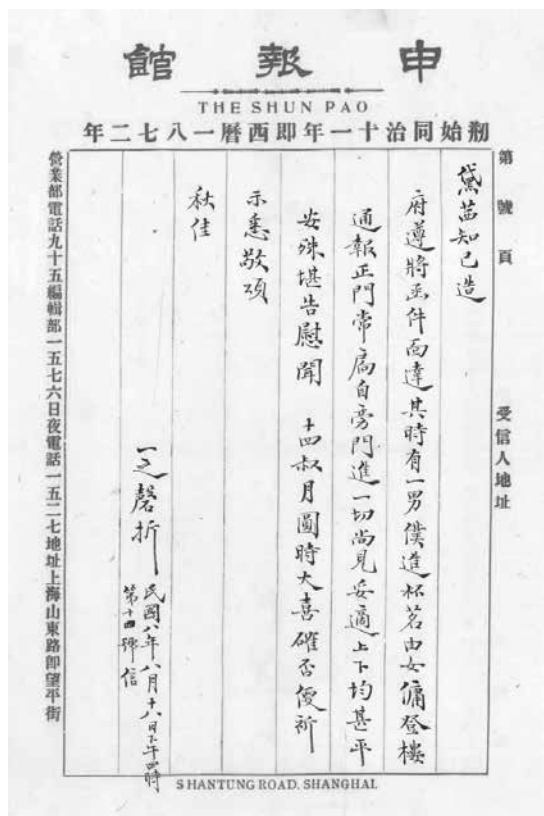 申報館
THE SHUN PAO
剏始同治十一年即西曆一八七二年
第 號 頁
受信人地址
黛茁知已造
府遵將函件面達其時有一男僕進杯茗由女傭登樓
通報正門常扃自旁門進一切尚見妥適上下均甚平
安殊堪告慰聞 十四叔月圓時大喜確否便祈
示悉敬頌
秋佳
一之磬折
民國八年八月十八日下午四時
第十四號信
營業部電話九十五編輯部一五七六日夜電話一五二七地址上海山東路卽望平街
SHANTUNG ROAD. SHANGHAI